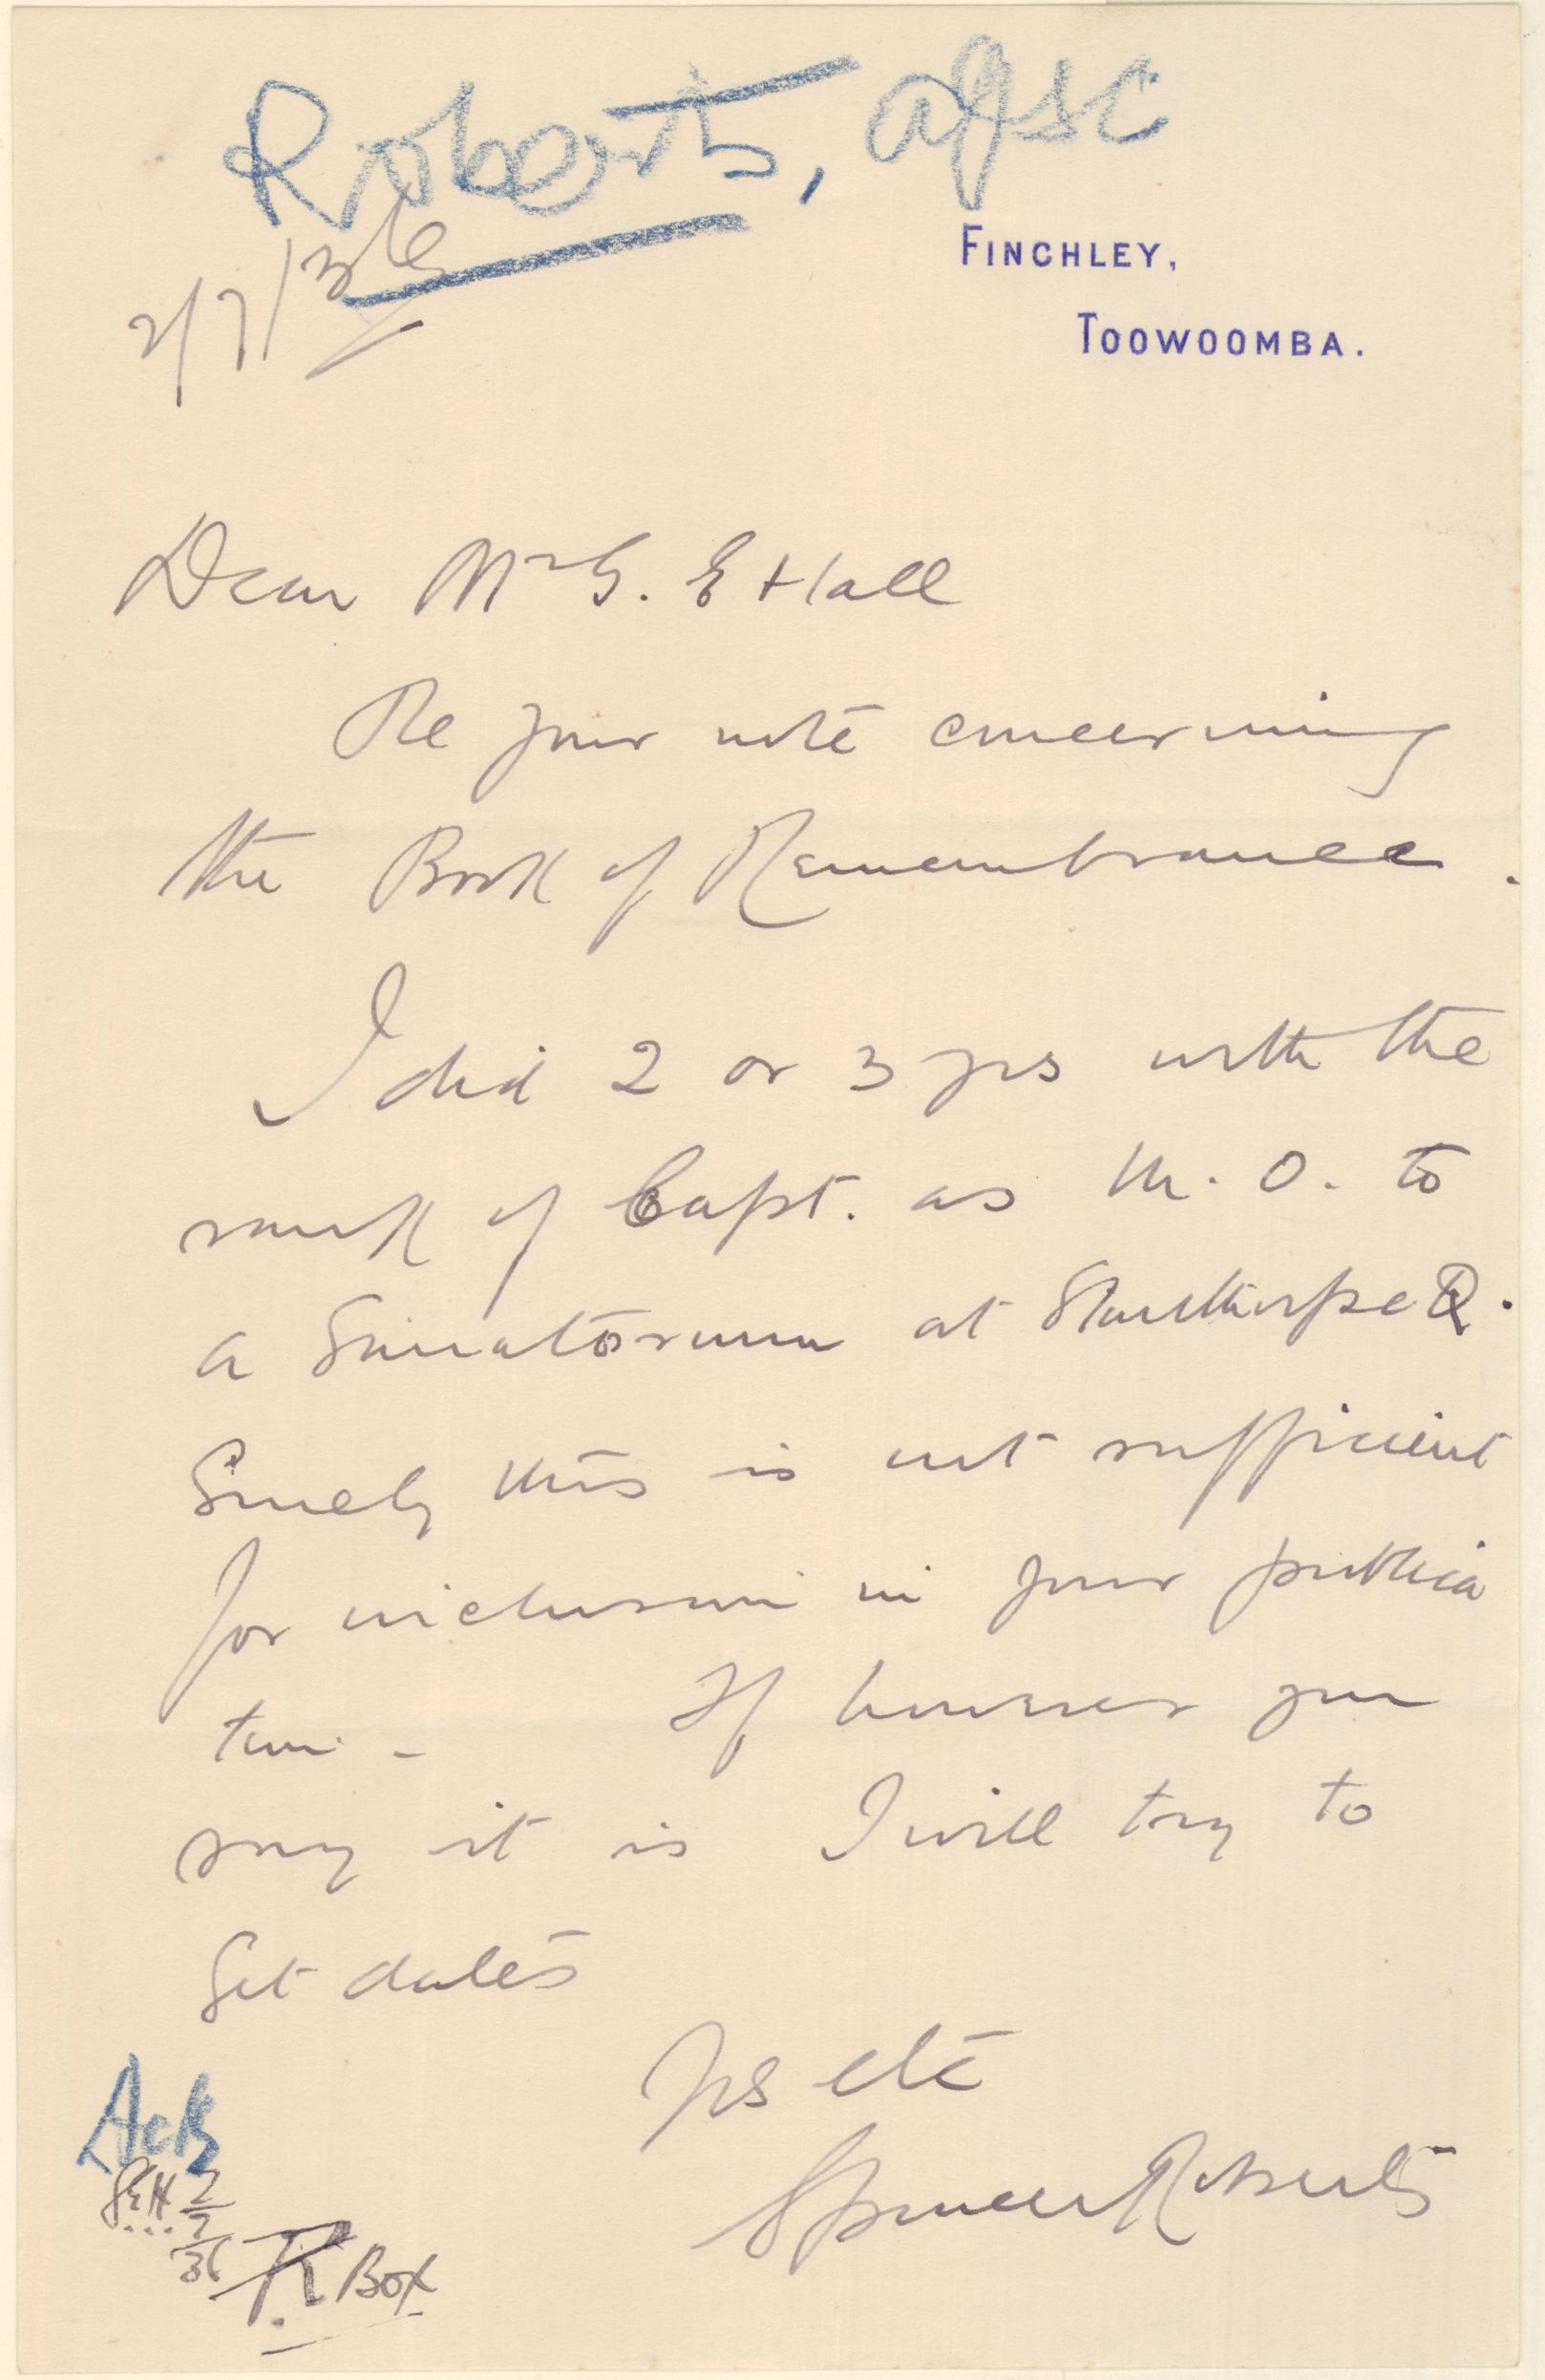 Roberts, AGSC
2/7/36
FINCHLEY,
TOOWOOMBA.
Dear Mr G. E Hall
Re your note concerning
the Book of Remembrance.
I did 2 or 3 yrs with the
rank of Capt. as M. O. to
a Sanatorium at Stanthorpe Q.
Surely this is not sufficient
for inclusion in your publica
tion - If however you
say it is I will try to
Get dates
Yrs etc
Spencer Roberts
Ack
GEH 2/7/36
R Box